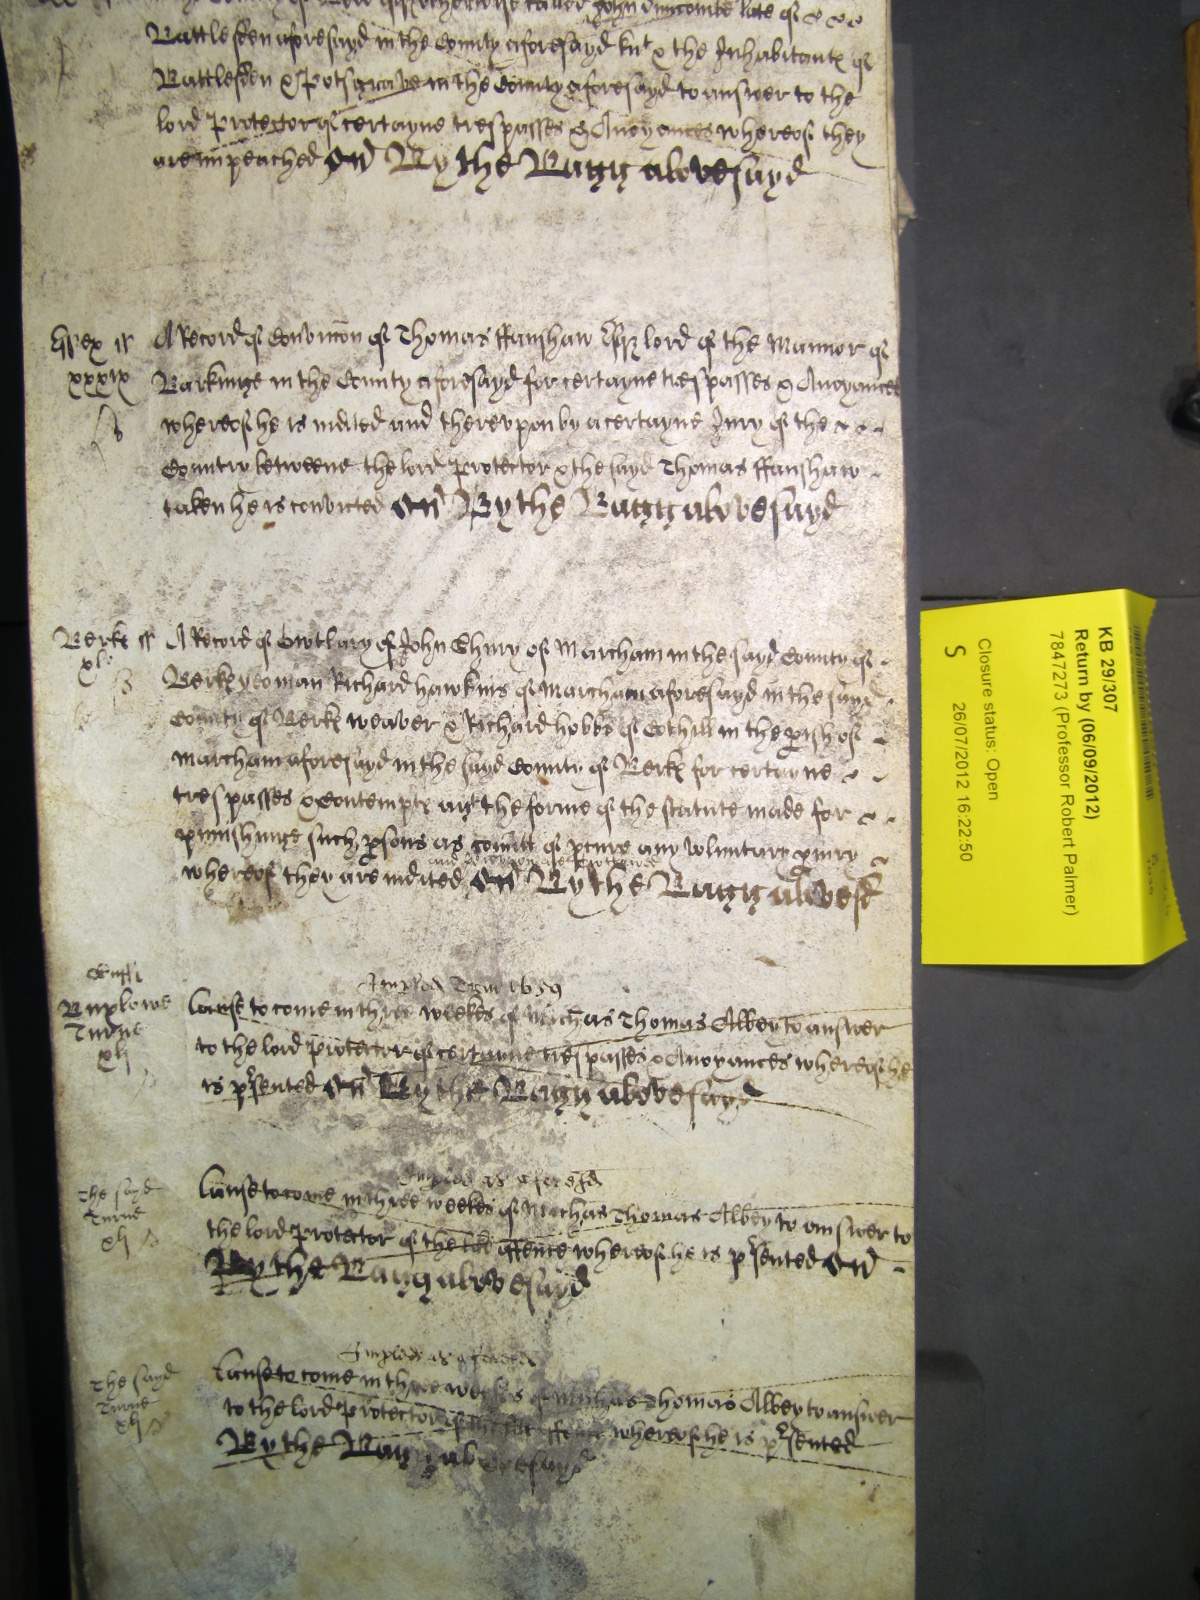 County of Bed otherwise called John Duncombe late of
Battlesden aforesayd in the County aforesayd knt & the Inhabitants of
Battlesden & Potsgrave in the County aforesayd to answer to the
lord Protector of certayne trespasses & Anoyances whereof they
are impeached By the Bagg abovesayd
Essex ss
xxxix
A Record of Convicion of Thomas ffanshaw Esqr lord of the Mannor of
Barkinge in the County aforesayd for certayne trespasses & Anoyances
whereof he is indited and thereupon by a certayne Jury of the
Country betweene the lord Protector & the sayd Thomas ffanshaw
taken he is convicted By the Bagg abovesayd
Berks ss
xl
A Record of Owtlary of John of Marcham in the sayd County of
Berks yeoman Richard hawkins of Marcham aforesayd in the sayd
County of Berks weaver & Richard hobbs of Cothill in the pish of
Marcham aforesayd in the sayd County of Berks for certayne
trespasses & Contempts agt the forme of the statute made for
punishinge such psons as comitt or pcure any voluntary piury
and
whereof they are indited By the Bagg abovesd
Burlowe
Turne
xlj
1659
Cause to come in three weekes of Michas Thomas Albey to answer
to the lord Protector of certayne trespasses & Anoyances whereof he
is psented By the Bagg abovesayd
The sayd
Turne
xlj
as aforesd
Cause to come in three weekes of Michas Thomas Albey to answer to
the lord Protector of the like offence whereof he is psented
By the Bagg abovesayd
The sayd
Turne
xlj
as aforesd
Cause to come in three weekes of Michas Thomas Albey to answer
to the lord Protector of the like offence whereof he is psented
By the Bagg abovesayd
KB 29/307
Return by (06/09/2012)
7847273 (Professor Robert Palmer)
Closure status: Open
S 26/07/2012 16:22:50